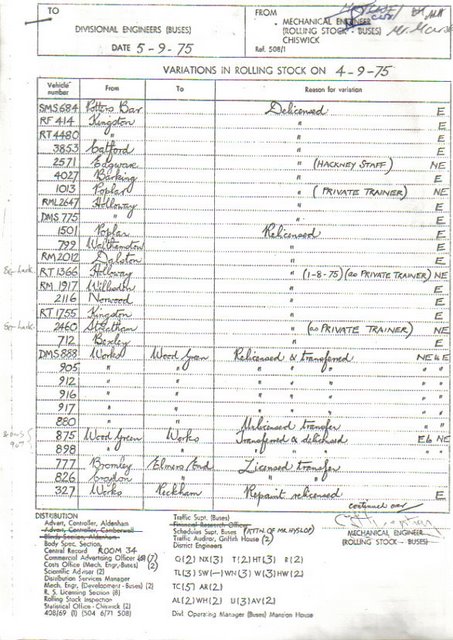 TO
DIVISIONAL ENGINEERS (BUSES)
DATE 5-9-75
FROM
MECHANICAL ENGINEER
(ROLLING STOCK - BUSES)
CHISWICK
Ref. 508/1
VARIATIONS IN ROLLING STOCK ON 4-9-75
Vehicle number From To Reason for variation
SMS 684 Potters Bar Delicensed E
RF 414 Kingston " E
RT 4480 " " E
3853 Catford " E
2571 Edgware " (HACKNEY STAFF) NE
4027 Barking " E
1013 Poplar " (PRIVATE TRAINER) NE
RML 2647 Holloway " E
DMS 775 " " E
1501 Poplar Relicensed E
799 Walthamstow " E
RM 2012 Dalston " E
RT 1366 Holloway " (1-8-75) (as PRIVATE TRAINER) NE
RM 1917 Willesden " E
2116 Norwood " E
RT 1755 Kingston " E
2460 Streatham " (as PRIVATE TRAINER) NE
712 Bexley " E
DMS 888 Works Wood Green Relicensed & transferred NE & E
905 " " " " " " "
912 " " " " " " "
916 " " " " " " "
917 " " " " " " "
880 " " Unlicensed transfer " "
875 Wood Green Works Transferred & delicensed E & NE
898 " " " " " " "
777 Bromley Elmers End Licensed transfer
826 Croydon " " "
327 Works Peckham Repaint relicensed E
continued over
DISTRIBUTION
Advert. Controller, Aldenham
Advert. Controller, Camberwell
Blinds Section, Aldenham
Body Spec. Section,
Central Record ROOM 34
Commercial Advertising Officer (7)
Costs Office (Mech. Engr. Buses) (2)
Scientific Adviser (2)
Distribution Services Manager
Mech. Engr. (Development - Buses) (2)
R. S. Licensing Section (8)
Rolling Stock Inspection
Statistical Office - Chiswick (2)
408/69 (1) (504 6/71 508)
Traffic Supt. (Buses)
Financial Research Office
Schedules Supt. Buses (ATTN. OF MR. HYSLOP)
Traffic Auditor, Griffith House (2)
District Engineers
Q(2) NX(3) T(2) HT(3) R(2)
TL(3) SW(-) WN(3) W(3) HW(2)
TC(5) AR(2)
AL(2) WH(2) U(3) AV(2)
Divl. Operating Manager (Buses) Mansion House
MECHANICAL ENGINEER
(ROLLING STOCK - BUSES)